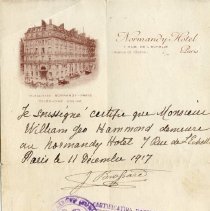 Normandy Hotel
Paris
Je soussigné certifie que Monsieur
William Geo Hammond demeure
au Normandy Hotel 7 Rue de l'Echelle
Paris le 11 Décembre 1917